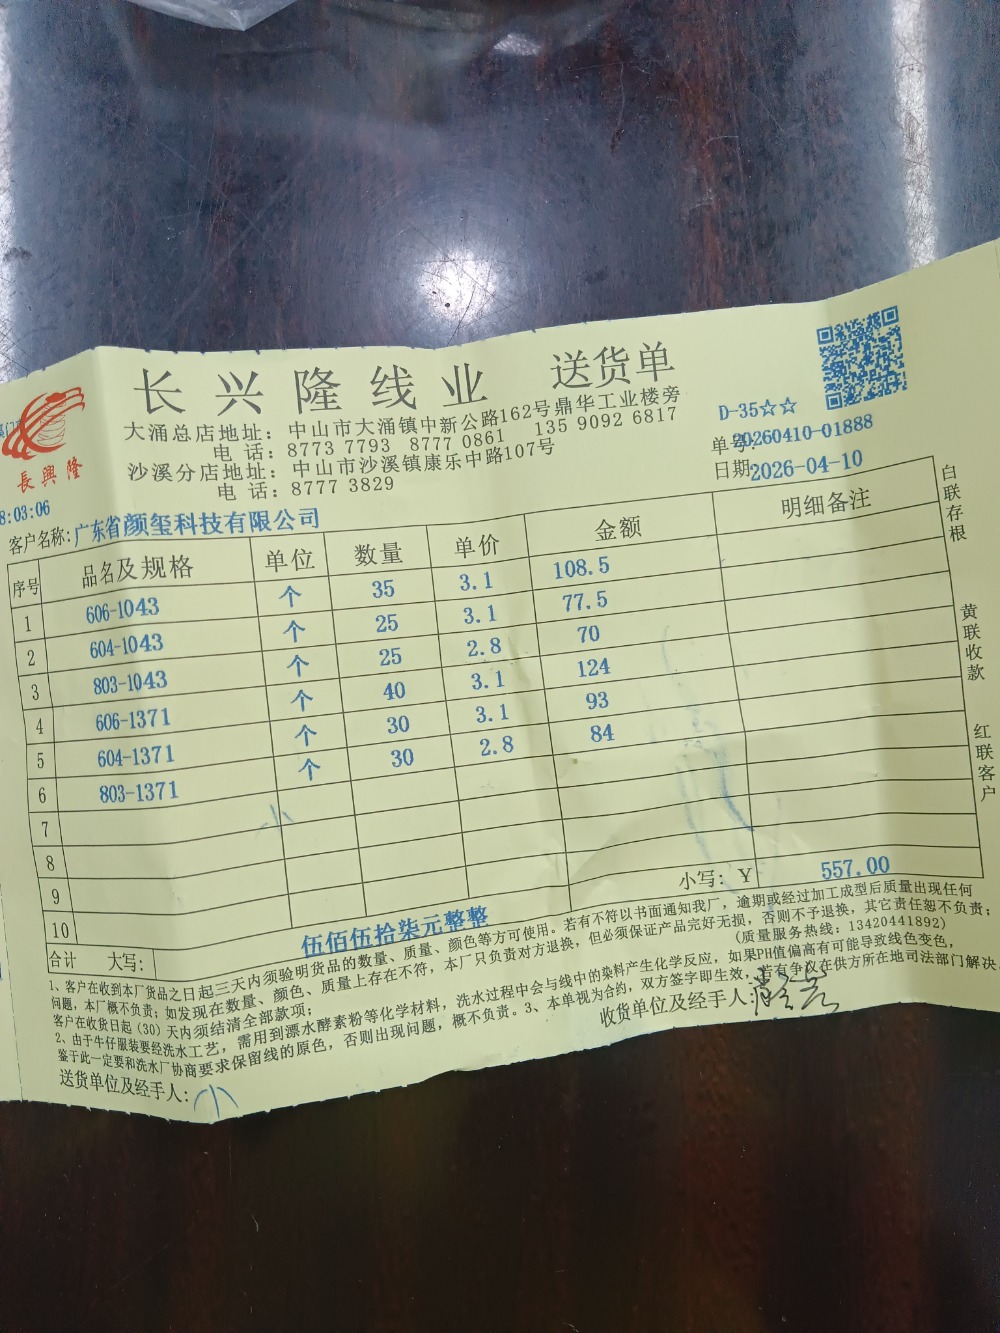 长兴隆线业 送货单
長興隆
大涌总店地址：中山市大涌镇中新公路162号鼎华工业楼旁
电 话：8773 7793 8777 0861 135 9092 6817
沙溪分店地址：中山市沙溪镇康乐中路107号
电 话：8777 3829
D-35☆☆
单号:20260410-01888
日期:2026-04-10
8:03:06
客户名称:广东省颜玺科技有限公司
序号 品名及规格 单位 数量 单价 金额 明细备注
1 606-1043 个 35 3.1 108.5
2 604-1043 个 25 3.1 77.5
3 803-1043 个 25 2.8 70
4 606-1371 个 40 3.1 124
5 604-1371 个 30 3.1 93
6 803-1371 个 30 2.8 84
7
8
9
10
合计 大写: 伍佰伍拾柒元整整 小写: Y 557.00
白联存根 黄联收款 红联客户
1、客户在收到本厂货品之日起三天内须验明货品的数量、质量、颜色等方可使用。若有不符以书面通知我厂，逾期或经过加工成型后质量出现任何
问题，本厂概不负责；如发现在数量、颜色、质量上存在不符，本厂只负责对方退换，但必须保证产品完好无损，否则不予退换，其它责任恕不负责；
客户在收货日起（30）天内须结清全部款项； (质量服务热线：13420441892)
2、由于牛仔服装要经洗水工艺，需用到漂水酵素粉等化学材料，洗水过程中会与线中的染料产生化学反应，如果PH值偏高有可能导致线色变色，
鉴于此一定要和洗水厂协商要求保留线的原色，否则出现问题，概不负责。3、本单视为合约，双方签字即生效，若有争议在供方所在地司法部门解决。
送货单位及经手人: 小
收货单位及经手人: